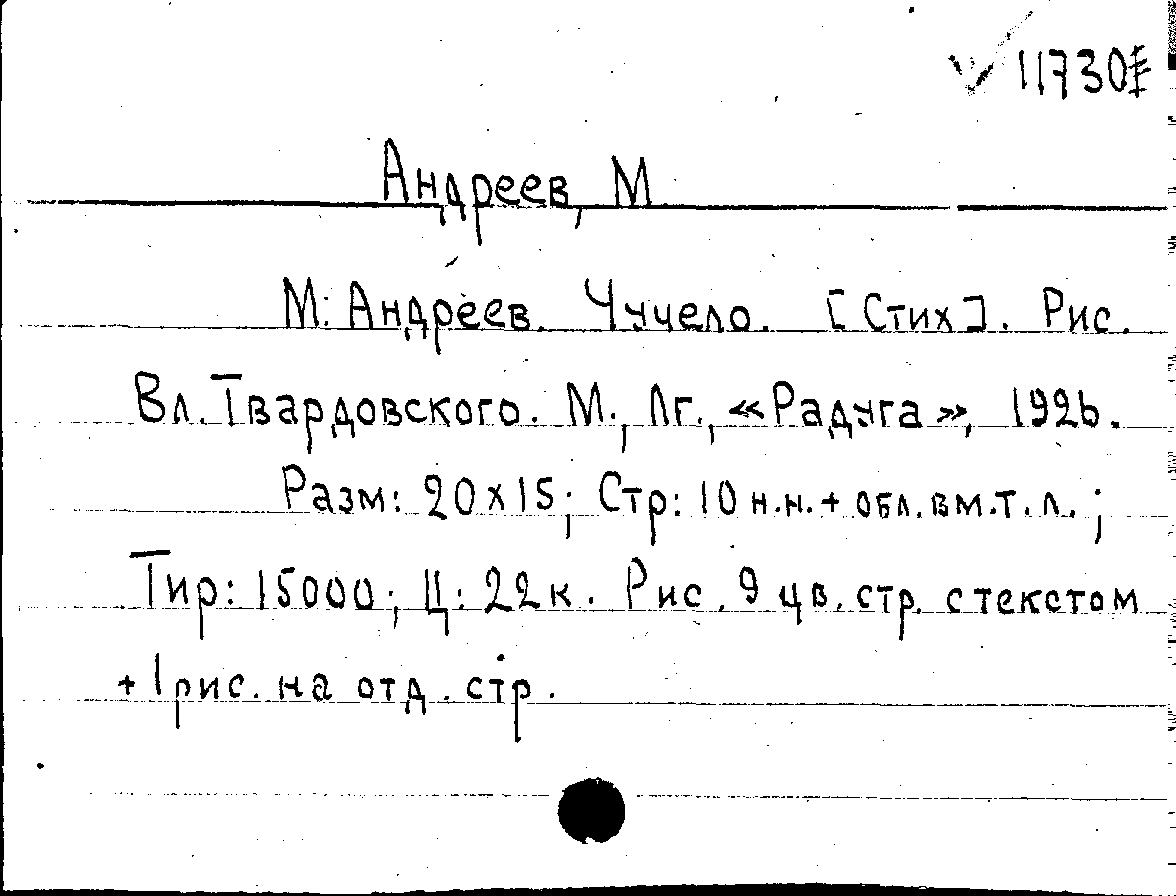 11730
Андреев, М
М. Андреев. Чучело. [Стих]. Рис.
Вл. Твардовского. М., Лг., «Радуга», 1926.
Разм: 20х15; Стр: 10 н.н. + обл. вм. т. л.;
Тир: 15000; Ц: 22к. Рис. 9 цв. стр. с текстом
+ 1 рис. на отд. стр.